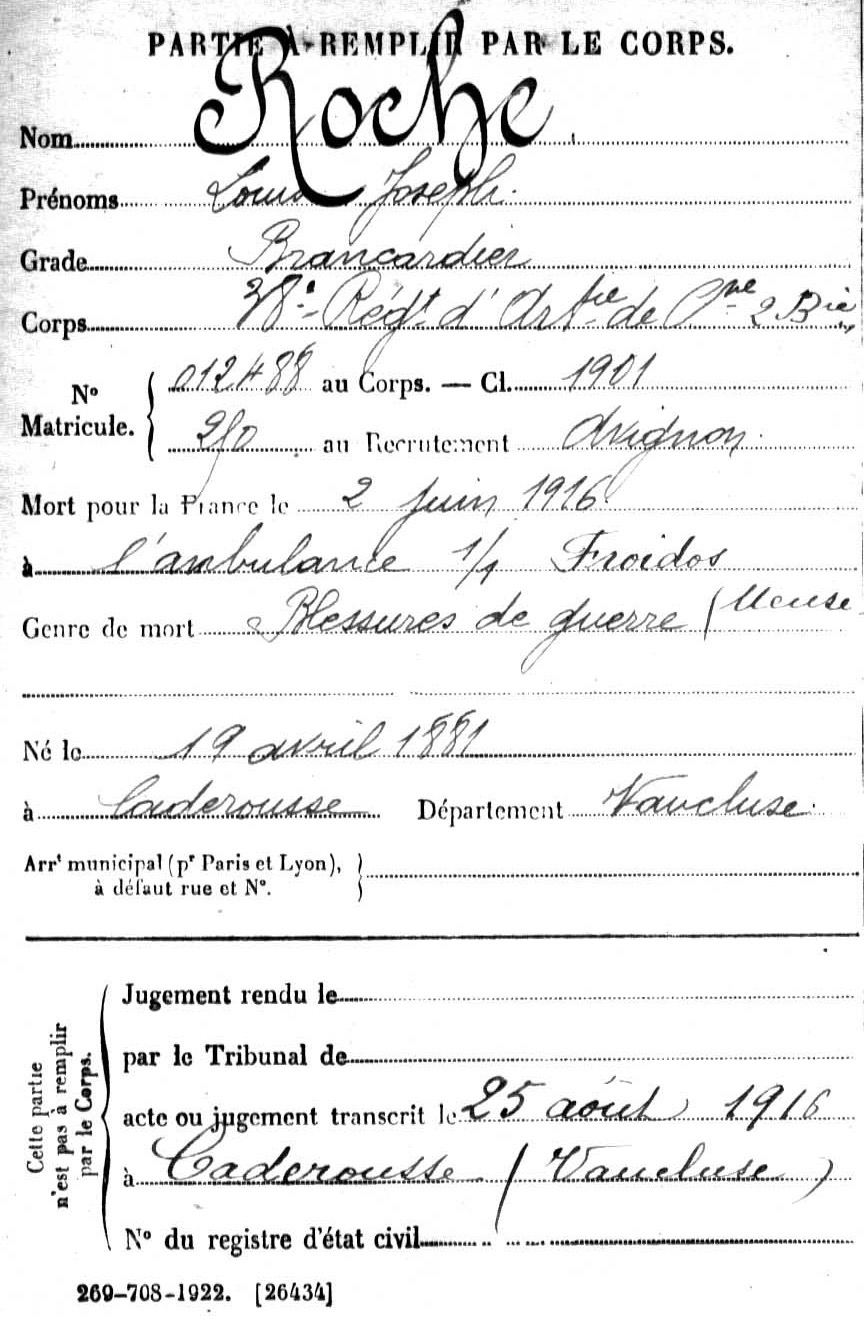 PARTIE À REMPLIR PAR LE CORPS.
Nom Roche
Prénoms Louis Joseph.
Grade Brancardier
Corps 38e Régt d'Artie de Cne 2 Bie
No Matricule. 012488 au Corps. — Cl. 1901
250 au Recrutement Avignon.
Mort pour la France le 2 juin 1916
à l'anbulance 1/1 Froidos
Genre de mort Blessures de guerre (Meuse
Né le 19 avril 1881
à Caderousse Département Vaucluse.
Arrt municipal (pr Paris et Lyon),
à défaut rue et No.
Cette partie n'est pas à remplir par le Corps.
Jugement rendu le
par le Tribunal de
acte ou jugement transcrit le 25 août 1916
à Caderousse (Vaucluse)
No du registre d'état civil
269-708-1922. [26434]